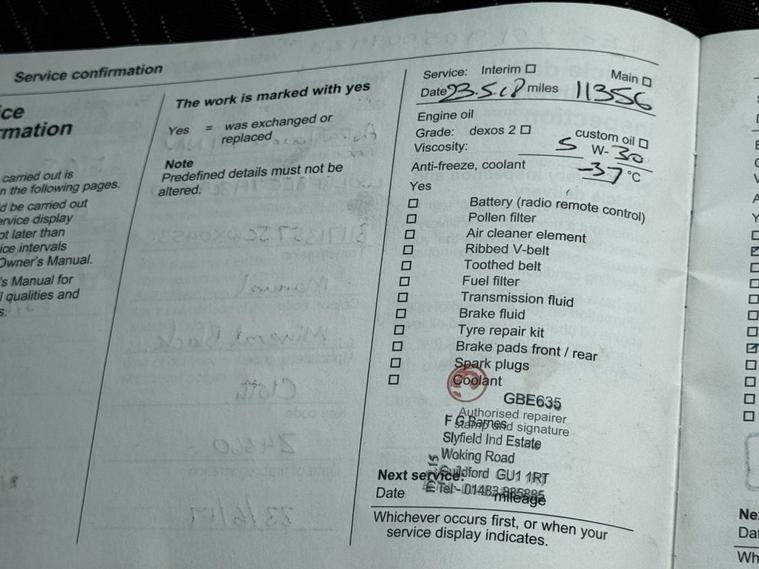 Service confirmation
ice
rmation
carried out is
n the following pages.
d be carried out
ervice display
ot later than
ice intervals
Owner's Manual.
's Manual for
l qualities and
s.
The work is marked with yes
Yes = was exchanged or
replaced
Note
Predefined details must not be
altered.
Service: Interim ☐ Main ☐
Date 23.5.18 miles 11356
Engine oil
Grade: dexos 2 ☐ custom oil ☐
Viscosity: 5 W- 30
Anti-freeze, coolant -37 °C
Yes
☐ Battery (radio remote control)
☐ Pollen filter
☐ Air cleaner element
☐ Ribbed V-belt
☐ Toothed belt
☐ Fuel filter
☐ Transmission fluid
☐ Brake fluid
☐ Tyre repair kit
☐ Brake pads front / rear
☐ Spark plugs
☐ Coolant
GBE635
Authorised repairer
stamp and signature
F G Barnes
Slyfield Ind Estate
Woking Road
Guildford GU1 1RT
Tel - 01483
Next service:
Date mileage
Whichever occurs first, or when your
service display indicates.
Ne
Dat
Wh